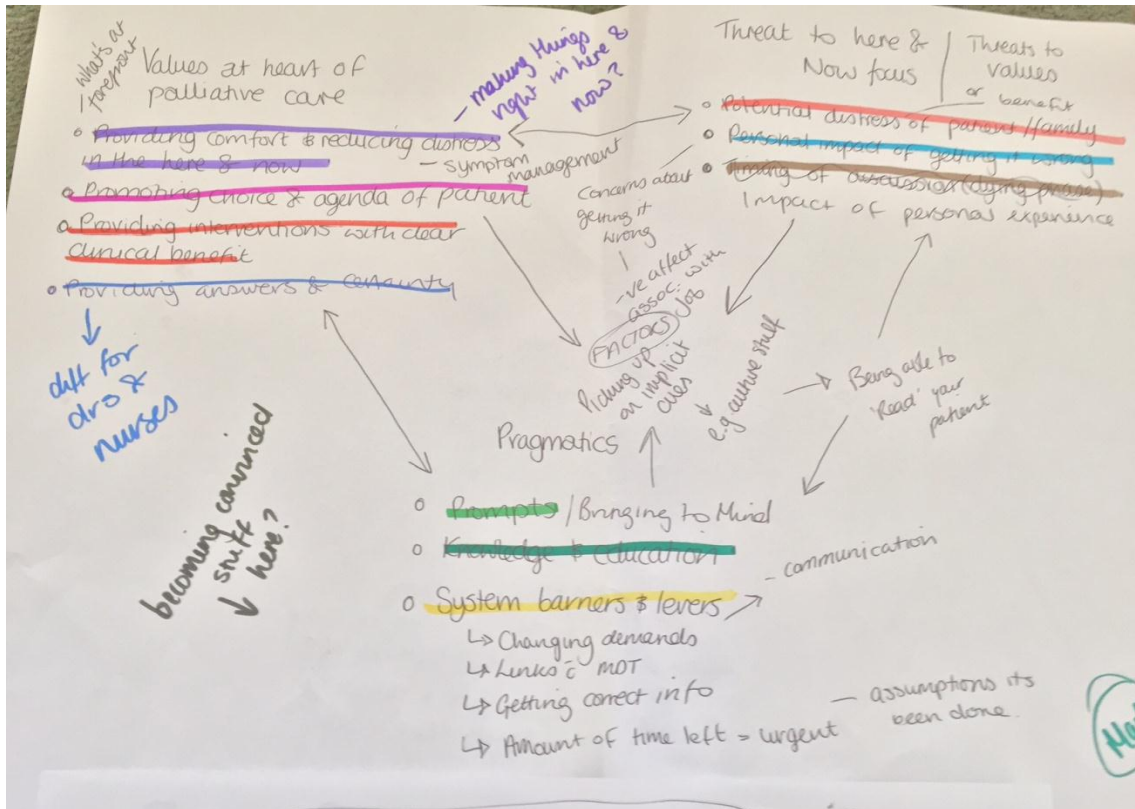 what's at
forefront
Values at heart of
palliative care
- making things
right in here &
now?
Providing comfort & reducing distress
in the here & now
- symptom
management
Promoting choice & agenda of patient
Providing interventions with clear
clinical benefit
Providing answers & certainty
diff for
drs &
nurses
Threat to here &
Now focus
Threats to
values
or benefit
Potential distress of patient/family
Personal impact of getting it wrong
Timing of discussion (dying phase)
Impact of personal experience
concerns about
getting it
wrong
-ve affect
assoc. with
job
FACTORS
Picking up
on implicit
cues
e.g. culture stuff
Being able to
'Read' your
patient
becoming convinced
stuff
here?
Pragmatics
Prompts / Bringing to Mind
Knowledge & education
System barriers & levers
- communication
↳ Changing demands
↳ Links c̄ MDT
↳ Getting correct info
↳ Amount of time left = urgent
- assumptions its
been done.